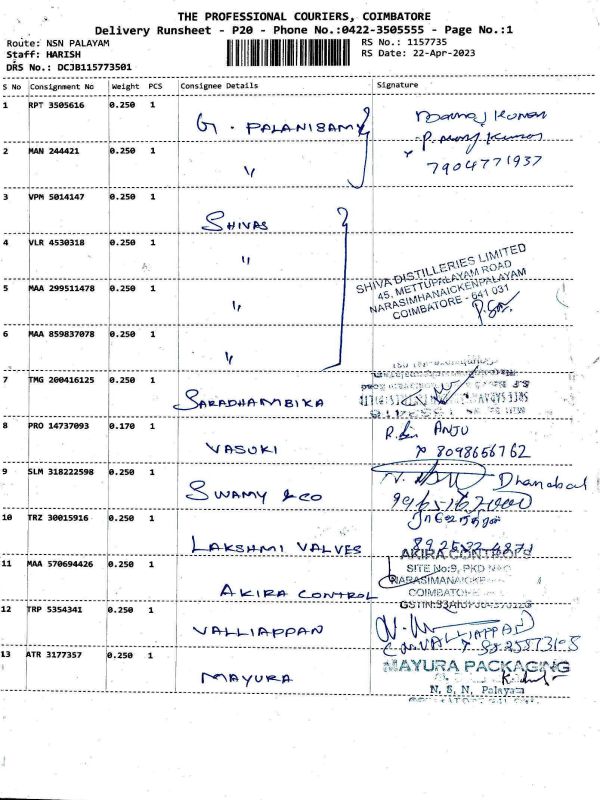 THE PROFESSIONAL COURIERS, COIMBATORE
Delivery Runsheet - P20 - Phone No.:0422-3505555 - Page No.:1
Route: NSN PALAYAM RS No.: 1157735
Staff: HARISH RS Date: 22-Apr-2023
DRS No.: DCJB115773501
S No Consignment No Weight PCS Consignee Details Signature
1 RPT 3505616 0.250 1
G. PALANISAMY
7904771937
2 MAN 244421 0.250 1
"
3 VPM 5014147 0.250 1
SHIVAS
4 VLR 4530318 0.250 1
"
SHIVA DISTILLERIES LIMITED
45, METTUPALAYAM ROAD
NARASIMHANAICKENPALAYAM
COIMBATORE - 641 031
5 MAA 299511478 0.250 1
"
6 MAA 859837078 0.250 1
"
7 TMG 200416125 0.250 1
SARADHAMBIKA
8 PRO 14737093 0.170 1
ANJU
VASUKI 8098656762
9 SLM 318222598 0.250 1
Dhanabal
SWAMY & CO
10 TRZ 30015916 0.250 1
LAKSHMI VALVES
11 MAA 570694426 0.250 1
AKIRA CONTROLS
SITE No:9, PKD
COIMBATORE
AKIRA CONTROL
12 TRP 5354341 0.250 1
VALLIAPPAN
VALLIAPPAN
13 ATR 3177357 0.250 1
MAYURA PACKAGING
MAYURA
N. S. N. Palayam